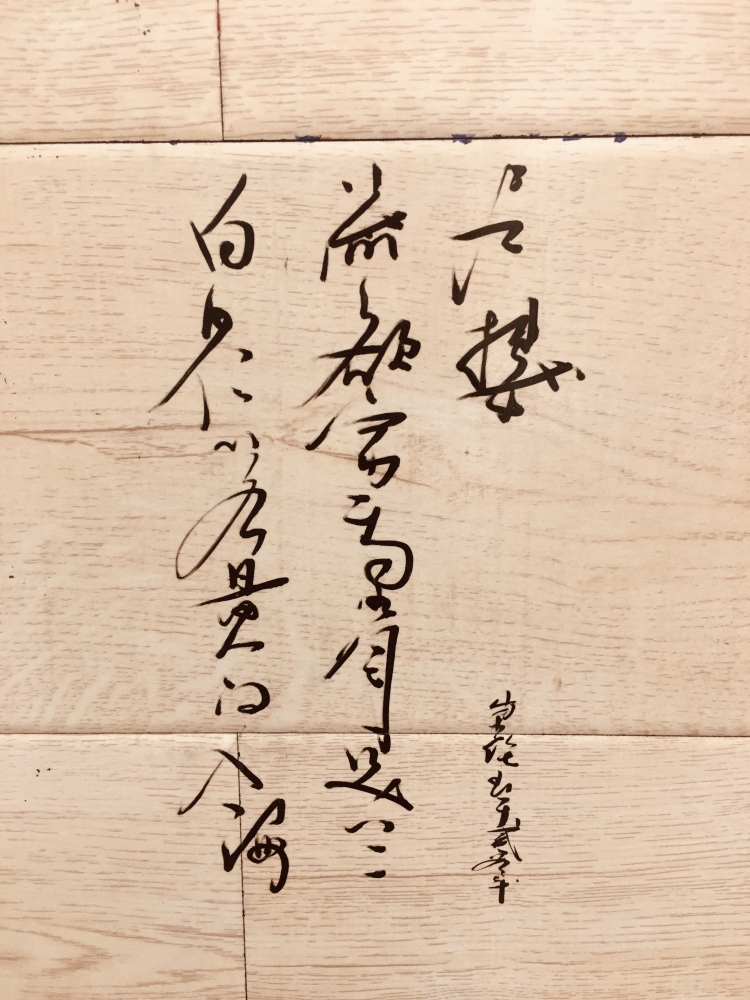 白日依山尽黄河入海
流欲穷千里目更上一
层楼